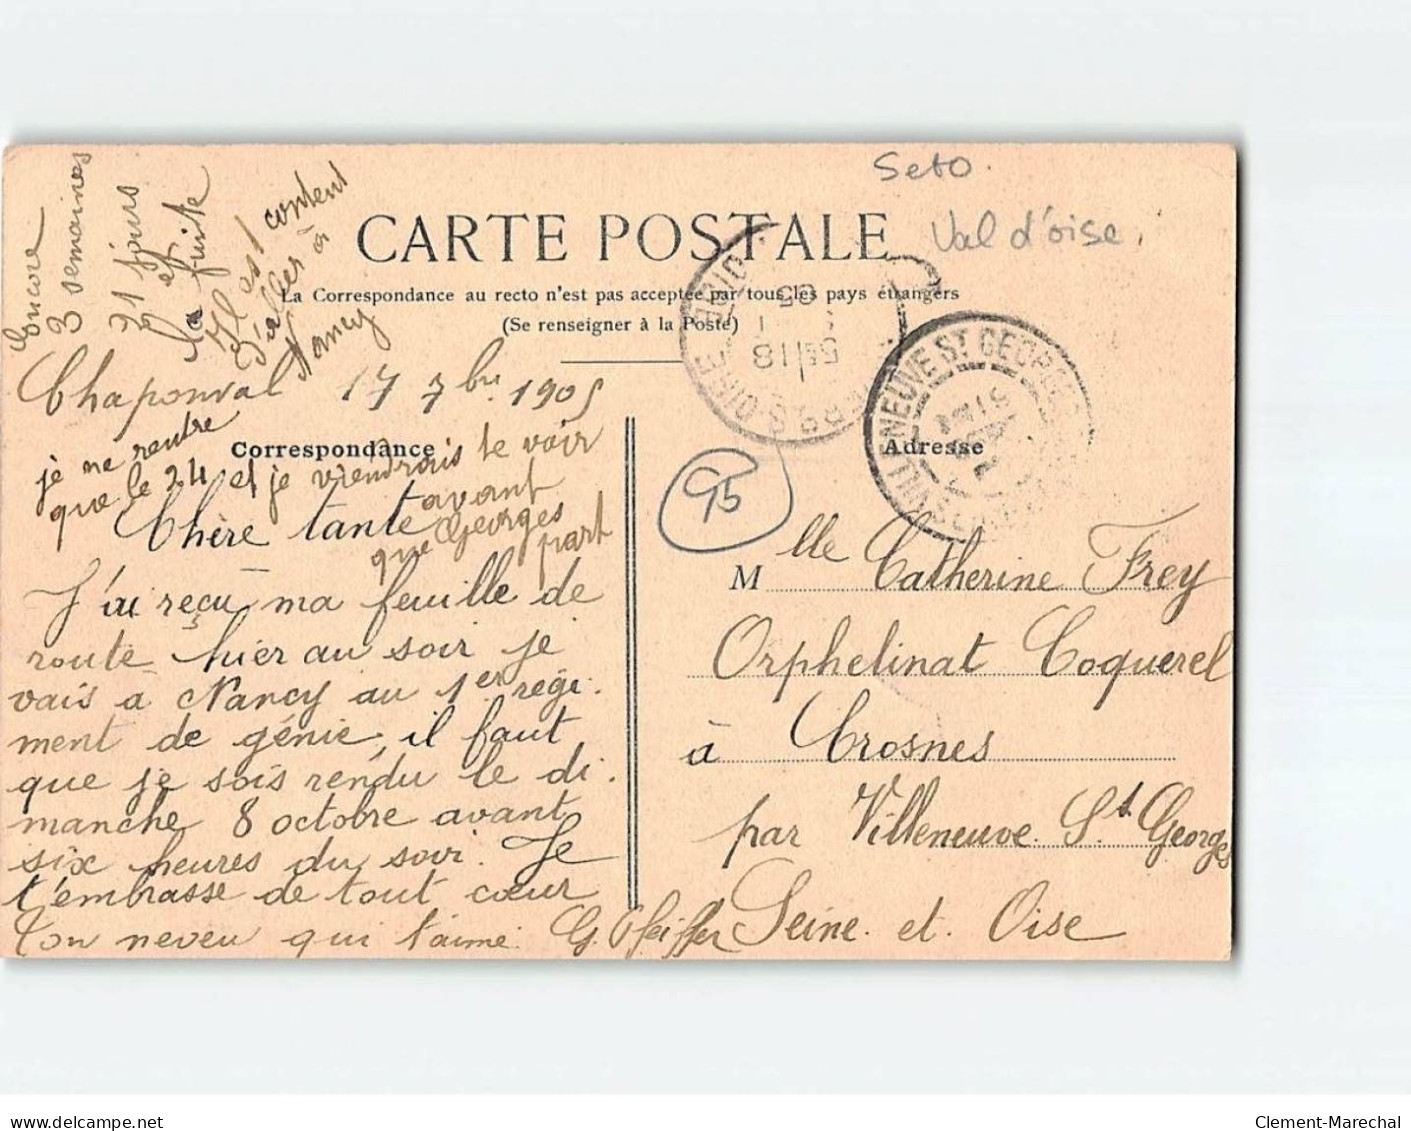 Seto.
Val d'oise.
CARTE POSTALE
La Correspondance au recto n'est pas acceptée par tous les pays étrangers
(Se renseigner à la Poste)
Encore
3 semaines
21 jours
et
la fuite
Il est content
d'aller à
Nancy
Chaponval 17 7bre 1905
Correspondance
Adresse
je ne rentre
que le 24 et je viendrais te voir
avant
que Georges
part
Chère tante
J'ai reçu ma feuille de
route hier au soir je
vais à Nancy au 1er régi-
ment de génie, il faut
que je sois rendu le di-
manche 8 octobre avant
six heures du soir. Je
t'embrasse de tout cœur
Ton neveu qui t'aime. G. Pfeiffer
95
VILLENEUVE ST GEORGES
Mlle Catherine Frey
Orphelinat Coquerel
à Crosnes
par Villeneuve St Georges
Seine et Oise
www.delcampe.net
Clement-Marechal